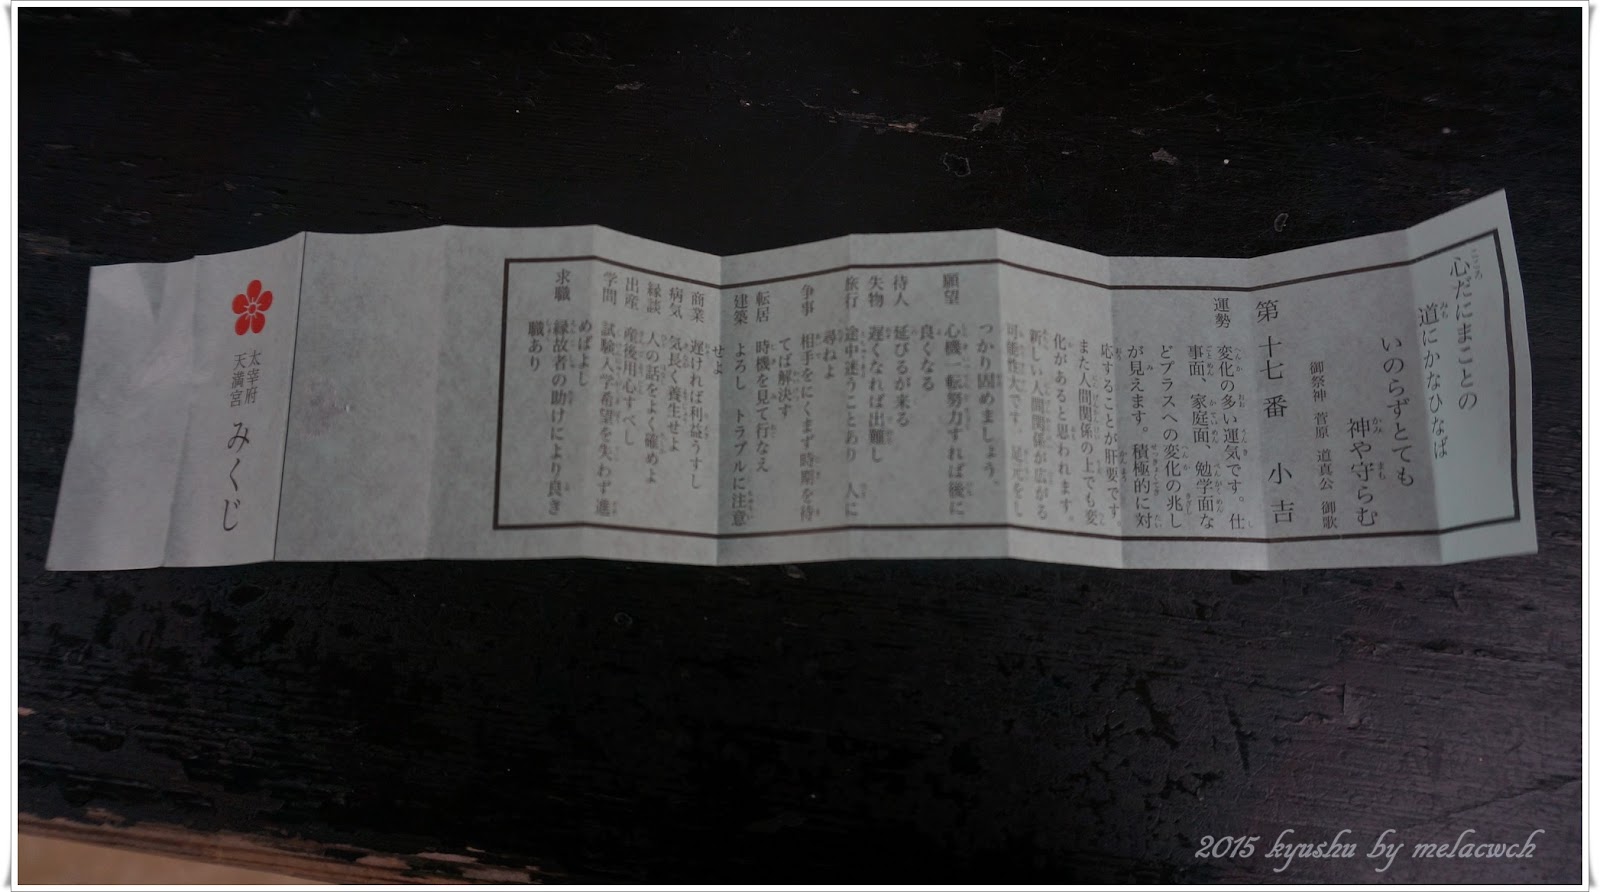 心だにまことの
道にかなひなば
いのらずとても
神や守らむ
御祭神 菅原 道真公 御歌
第十七番 小吉
運勢 変化の多い運気です。仕
事面、家庭面、勉学面な
どプラスへの変化の兆し
が見えます。積極的に対
応することが肝要です。
また人間関係の上でも変
化があると思われます。
新しい人間関係が広がる
可能性大です。足元をし
っかり固めましょう。
願望 心機一転努力すれば後に
良くなる
待人 延びるが来る
失物 遅くなれば出難し
旅行 途中迷うことあり 人に
尋ねよ
争事 相手をにくまず時期を待
てば解決す
転居 時機を見て行なえ
建築 よろし トラブルに注意
せよ
商業 遅ければ利益うすし
病気 気長く養生せよ
縁談 人の話をよく確めよ
出産 産後用心すべし
学問 試験入学希望を失わず進
めばよし
求職 縁故者の助けにより良き
職あり
太宰府
天満宮 みくじ
2015 kyushu by melacwch